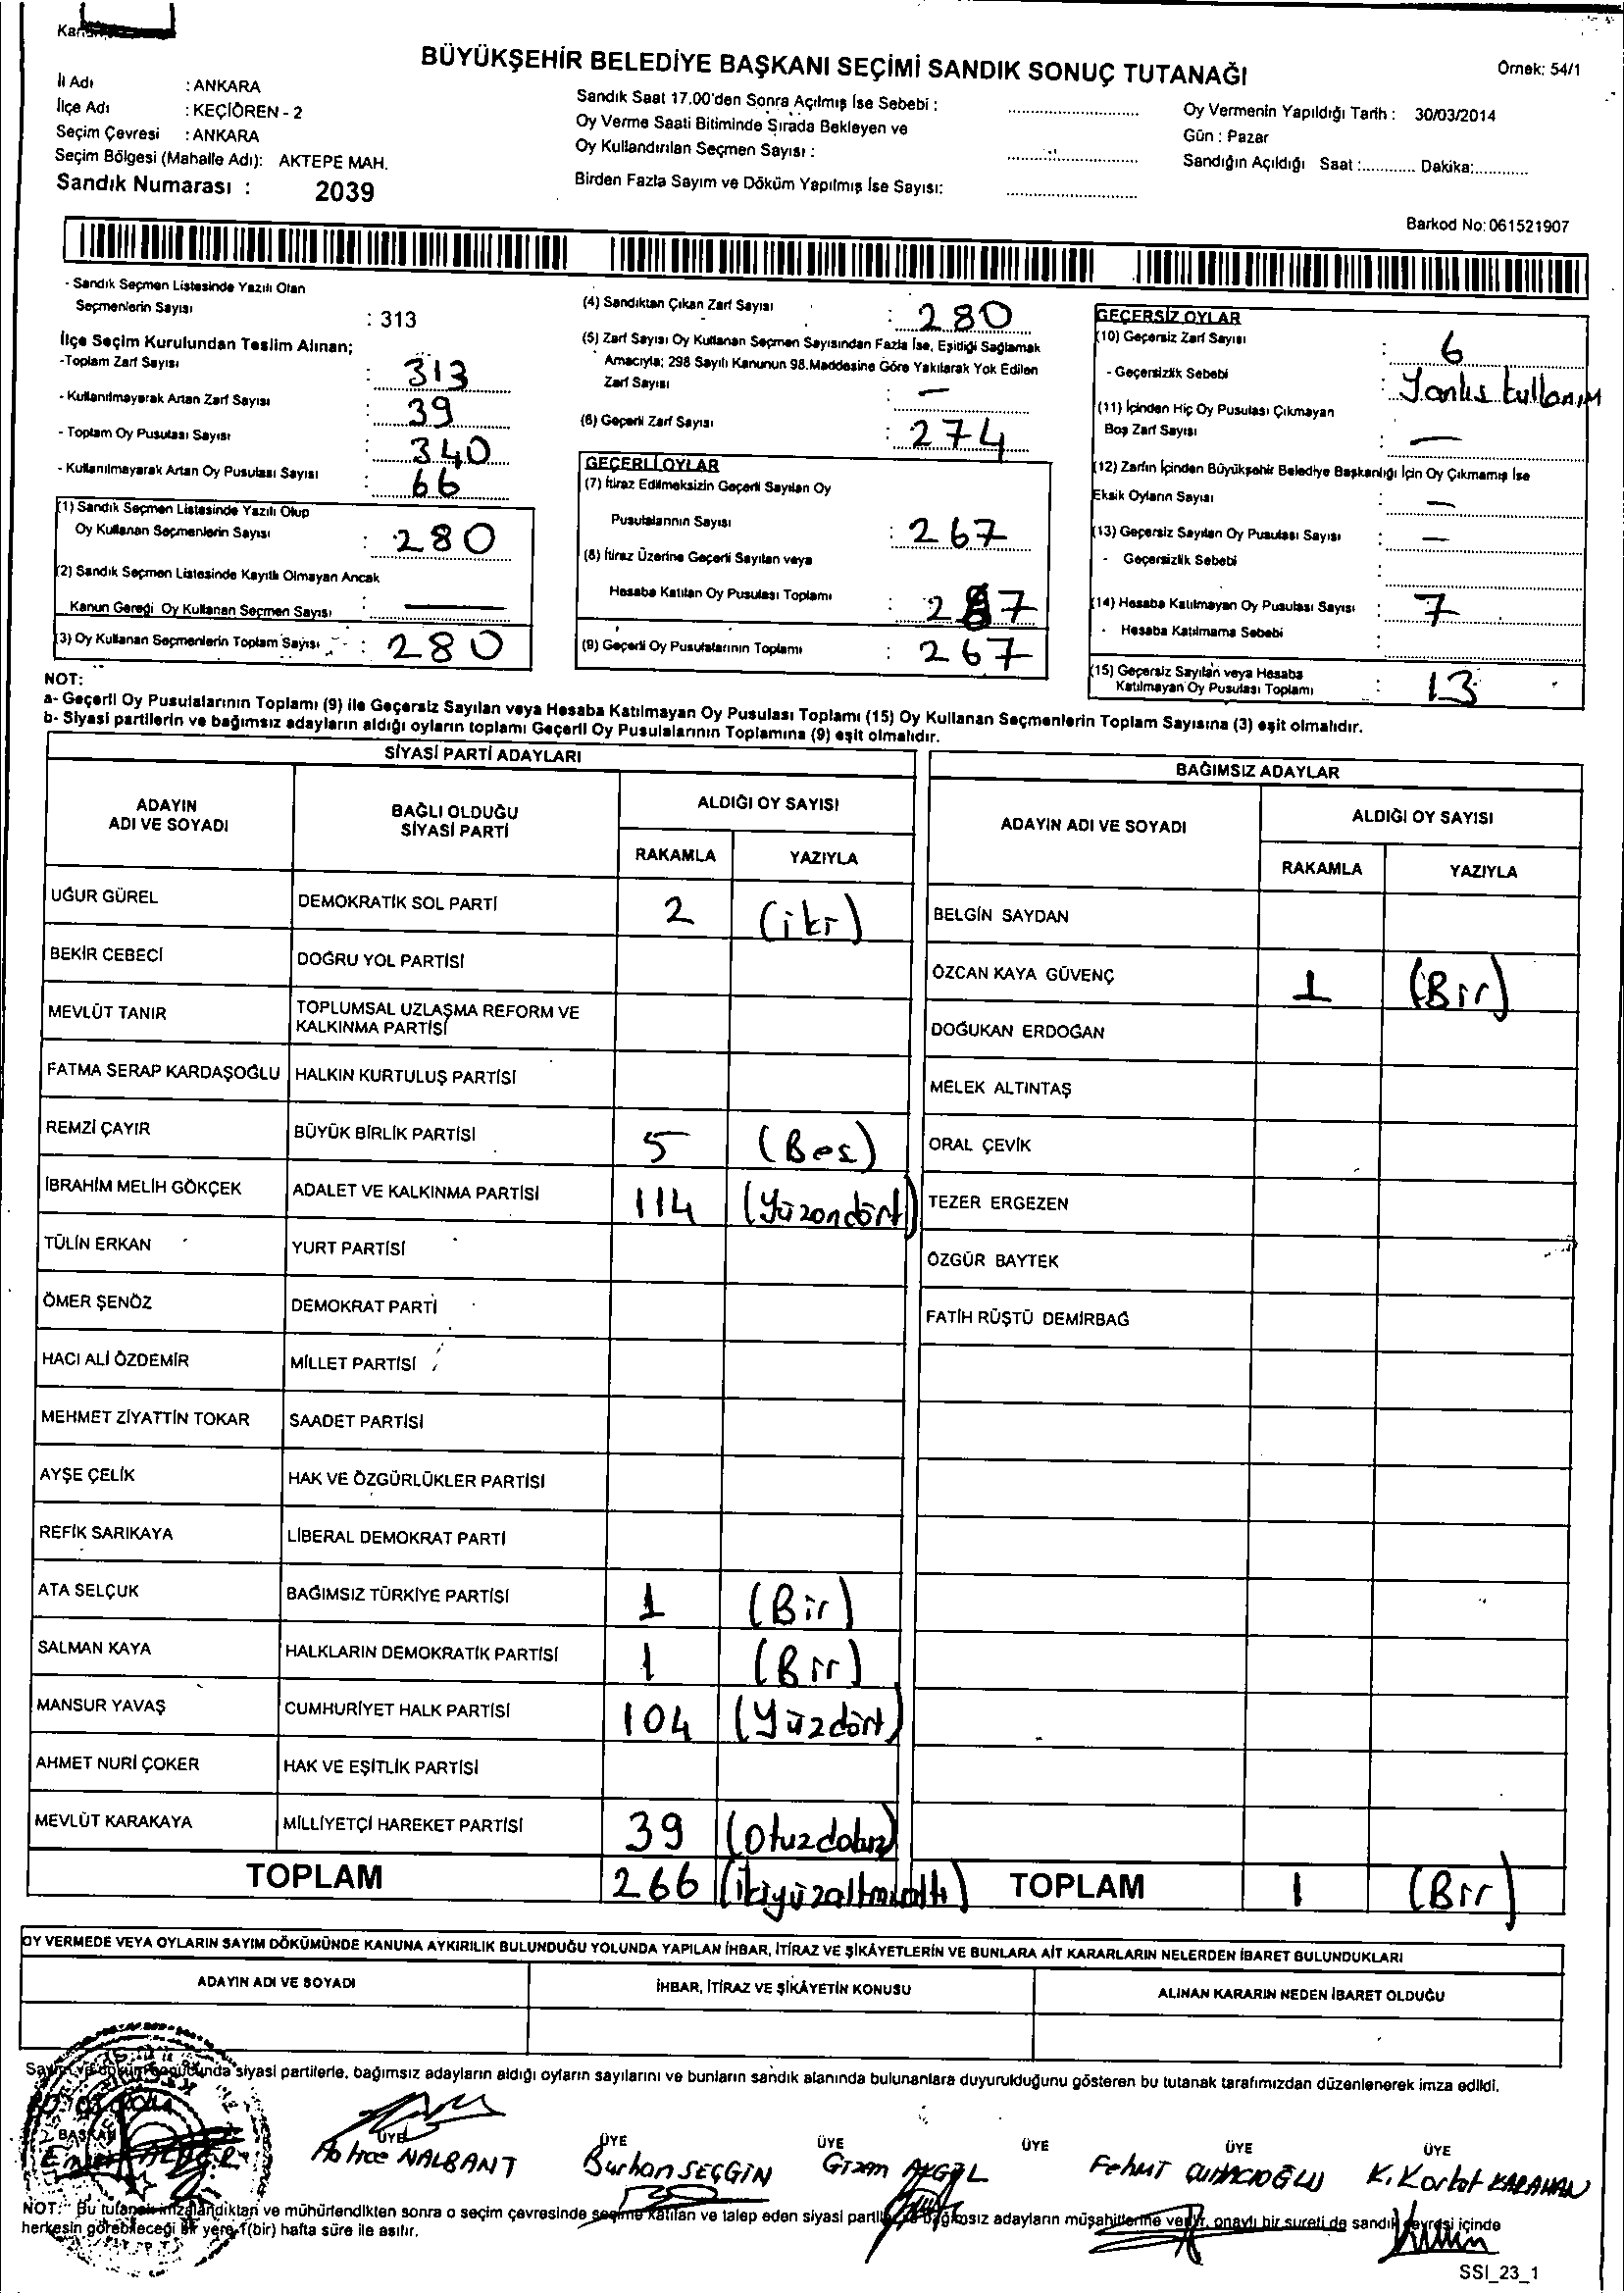 BÜYÜKŞEHİR BELEDİYE BAŞKANI SEÇİMİ SANDIK SONUÇ TUTANAĞI
Örnek: 54/1
İl Adı : ANKARA
İlçe Adı : KEÇİÖREN - 2
Seçim Çevresi : ANKARA
Seçim Bölgesi (Mahalle Adı): AKTEPE MAH.
Sandık Numarası : 2039
Sandık Saat 17.00'den Sonra Açılmış İse Sebebi :
Oy Verme Saati Bitiminde Sırada Bekleyen ve
Oy Kullandırılan Seçmen Sayısı :
Birden Fazla Sayım ve Döküm Yapılmış İse Sayısı:
Oy Vermenin Yapıldığı Tarih : 30/03/2014
Gün : Pazar
Sandığın Açıldığı Saat :............. Dakika:.............
Barkod No: 061521907
- Sandık Seçmen Listesinde Yazılı Olan
Seçmenlerin Sayısı : 313
İlçe Seçim Kurulundan Teslim Alınan;
-Toplam Zarf Sayısı : 313
- Kullanılmayarak Artan Zarf Sayısı : 39
- Toplam Oy Pusulası Sayısı : 340
- Kullanılmayarak Artan Oy Pusulası Sayısı : 66
(1) Sandık Seçmen Listesinde Yazılı Olup
Oy Kullanan Seçmenlerin Sayısı : 280
(2) Sandık Seçmen Listesinde Kayıtlı Olmayan Ancak
Kanun Gereği Oy Kullanan Seçmen Sayısı : —
(3) Oy Kullanan Seçmenlerin Toplam Sayısı : 280
(4) Sandıktan Çıkan Zarf Sayısı : 280
(5) Zarf Sayısı Oy Kullanan Seçmen Sayısından Fazla İse, Eşitliği Sağlamak
Amacıyla; 298 Sayılı Kanunun 98.Maddesine Göre Yakılarak Yok Edilen
Zarf Sayısı : —
(6) Geçerli Zarf Sayısı : 274
GEÇERLİ OYLAR
(7) İtiraz Edilmeksizin Geçerli Sayılan Oy
Pusulalarının Sayısı : 267
(8) İtiraz Üzerine Geçerli Sayılan veya
Hesaba Katılan Oy Pusulası Toplamı :
(9) Geçerli Oy Pusulalarının Toplamı : 267
GEÇERSİZ OYLAR
(10) Geçersiz Zarf Sayısı : 6
- Geçersizlik Sebebi : Yanlıs kullanım
(11) İçinden Hiç Oy Pusulası Çıkmayan
Boş Zarf Sayısı : —
(12) Zarfın İçinden Büyükşehir Belediye Başkanlığı İçin Oy Çıkmamış İse
Eksik Oyların Sayısı : —
(13) Geçersiz Sayılan Oy Pusulası Sayısı : —
- Geçersizlik Sebebi :
(14) Hesaba Katılmayan Oy Pusulası Sayısı : 7
- Hesaba Katılmama Sebebi :
(15) Geçersiz Sayılan veya Hesaba
Katılmayan Oy Pusulası Toplamı : 13
NOT:
a- Geçerli Oy Pusulalarının Toplamı (9) ile Geçersiz Sayılan veya Hesaba Katılmayan Oy Pusulası Toplamı (15) Oy Kullanan Seçmenlerin Toplam Sayısına (3) eşit olmalıdır.
b- Siyasi partilerin ve bağımsız adayların aldığı oyların toplamı Geçerli Oy Pusulalarının Toplamına (9) eşit olmalıdır.
SİYASİ PARTİ ADAYLARI
ADAYIN ADI VE SOYADI
BAĞLI OLDUĞU SİYASİ PARTİ
ALDIĞI OY SAYISI
RAKAMLA YAZIYLA
UĞUR GÜREL DEMOKRATİK SOL PARTİ 2 (iki)
BEKİR CEBECİ DOĞRU YOL PARTİSİ
MEVLÜT TANIR TOPLUMSAL UZLAŞMA REFORM VE KALKINMA PARTİSİ
FATMA SERAP KARDAŞOĞLU HALKIN KURTULUŞ PARTİSİ
REMZİ ÇAYIR BÜYÜK BİRLİK PARTİSİ 5 (Bes)
İBRAHİM MELİH GÖKÇEK ADALET VE KALKINMA PARTİSİ 114 (Yüzondört)
TÜLİN ERKAN YURT PARTİSİ
ÖMER ŞENÖZ DEMOKRAT PARTİ
HACI ALİ ÖZDEMİR MİLLET PARTİSİ
MEHMET ZİYATTİN TOKAR SAADET PARTİSİ
AYŞE ÇELİK HAK VE ÖZGÜRLÜKLER PARTİSİ
REFİK SARIKAYA LİBERAL DEMOKRAT PARTİ
ATA SELÇUK BAĞIMSIZ TÜRKİYE PARTİSİ 1 (Bir)
SALMAN KAYA HALKLARIN DEMOKRATİK PARTİSİ 1 (Bir)
MANSUR YAVAŞ CUMHURİYET HALK PARTİSİ 104 (Yüzdört)
AHMET NURİ ÇOKER HAK VE EŞİTLİK PARTİSİ
MEVLÜT KARAKAYA MİLLİYETÇİ HAREKET PARTİSİ 39 (Otuzdokuz)
TOPLAM 266 (ikiyüzaltmısaltı)
BAĞIMSIZ ADAYLAR
ADAYIN ADI VE SOYADI
ALDIĞI OY SAYISI
RAKAMLA YAZIYLA
BELGİN SAYDAN
ÖZCAN KAYA GÜVENÇ 1 (Bir)
DOĞUKAN ERDOĞAN
MELEK ALTINTAŞ
ORAL ÇEVİK
TEZER ERGEZEN
ÖZGÜR BAYTEK
FATİH RÜŞTÜ DEMİRBAĞ
TOPLAM 1 (Bir)
OY VERMEDE VEYA OYLARIN SAYIM DÖKÜMÜNDE KANUNA AYKIRILIK BULUNDUĞU YOLUNDA YAPILAN İHBAR, İTİRAZ VE ŞİKÂYETLERİN VE BUNLARA AİT KARARLARIN NELERDEN İBARET BULUNDUKLARI
ADAYIN ADI VE SOYADI
İHBAR, İTİRAZ VE ŞİKÂYETİN KONUSU
ALINAN KARARIN NEDEN İBARET OLDUĞU
siyasi partilerle, bağımsız adayların aldığı oyların sayılarını ve bunların sandık alanında bulunanlara duyurulduğunu gösteren bu tutanak tarafımızdan düzenlenerek imza edildi.
BAŞKAN ÜYE ÜYE ÜYE ÜYE ÜYE ÜYE
NALBANT Burhan SEÇGİN Gizem AKGÜL Fehmi K. Korkut KARAHAN
NOT: Bu tutanak imzalandıktan ve mühürlendikten sonra o seçim çevresinde seçime katılan ve talep eden siyasi parti bağımsız adayların müşahitlerine verilir, onaylı bir sureti de sandık çevresi içinde
herkesin görebileceği bir yere 1(bir) hafta süre ile asılır.
SSI_23_1